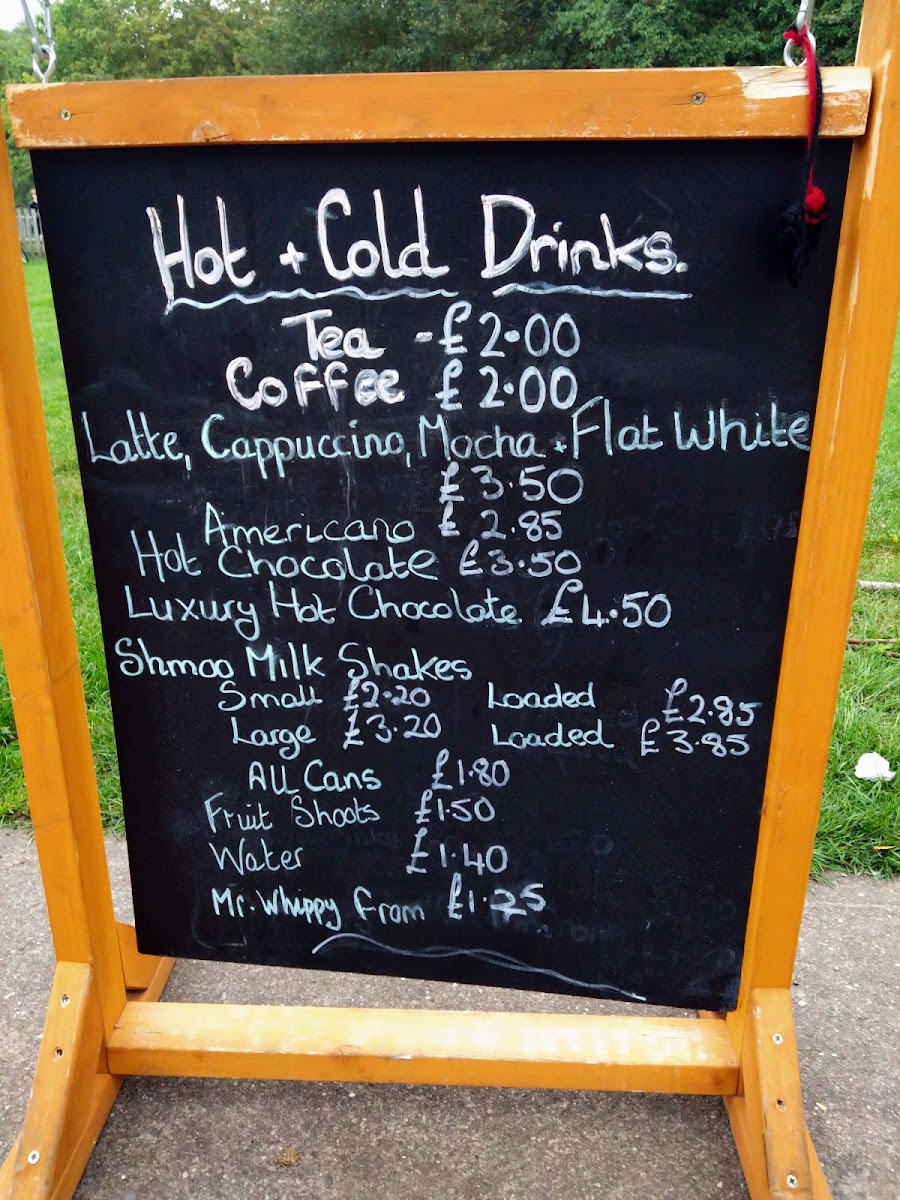 Hot + Cold Drinks.
Tea - £2.00
Coffee £2.00
Latte, Cappuccino, Mocha + Flat White
£3.50
Americano £2.85
Hot Chocolate £3.50
Luxury Hot Chocolate £4.50
Shmoo Milk Shakes
Small £2.20 Loaded £2.85
Large £3.20 Loaded £3.85
All Cans £1.80
Fruit Shoots £1.50
Water £1.40
Mr. Whippy from £1.25